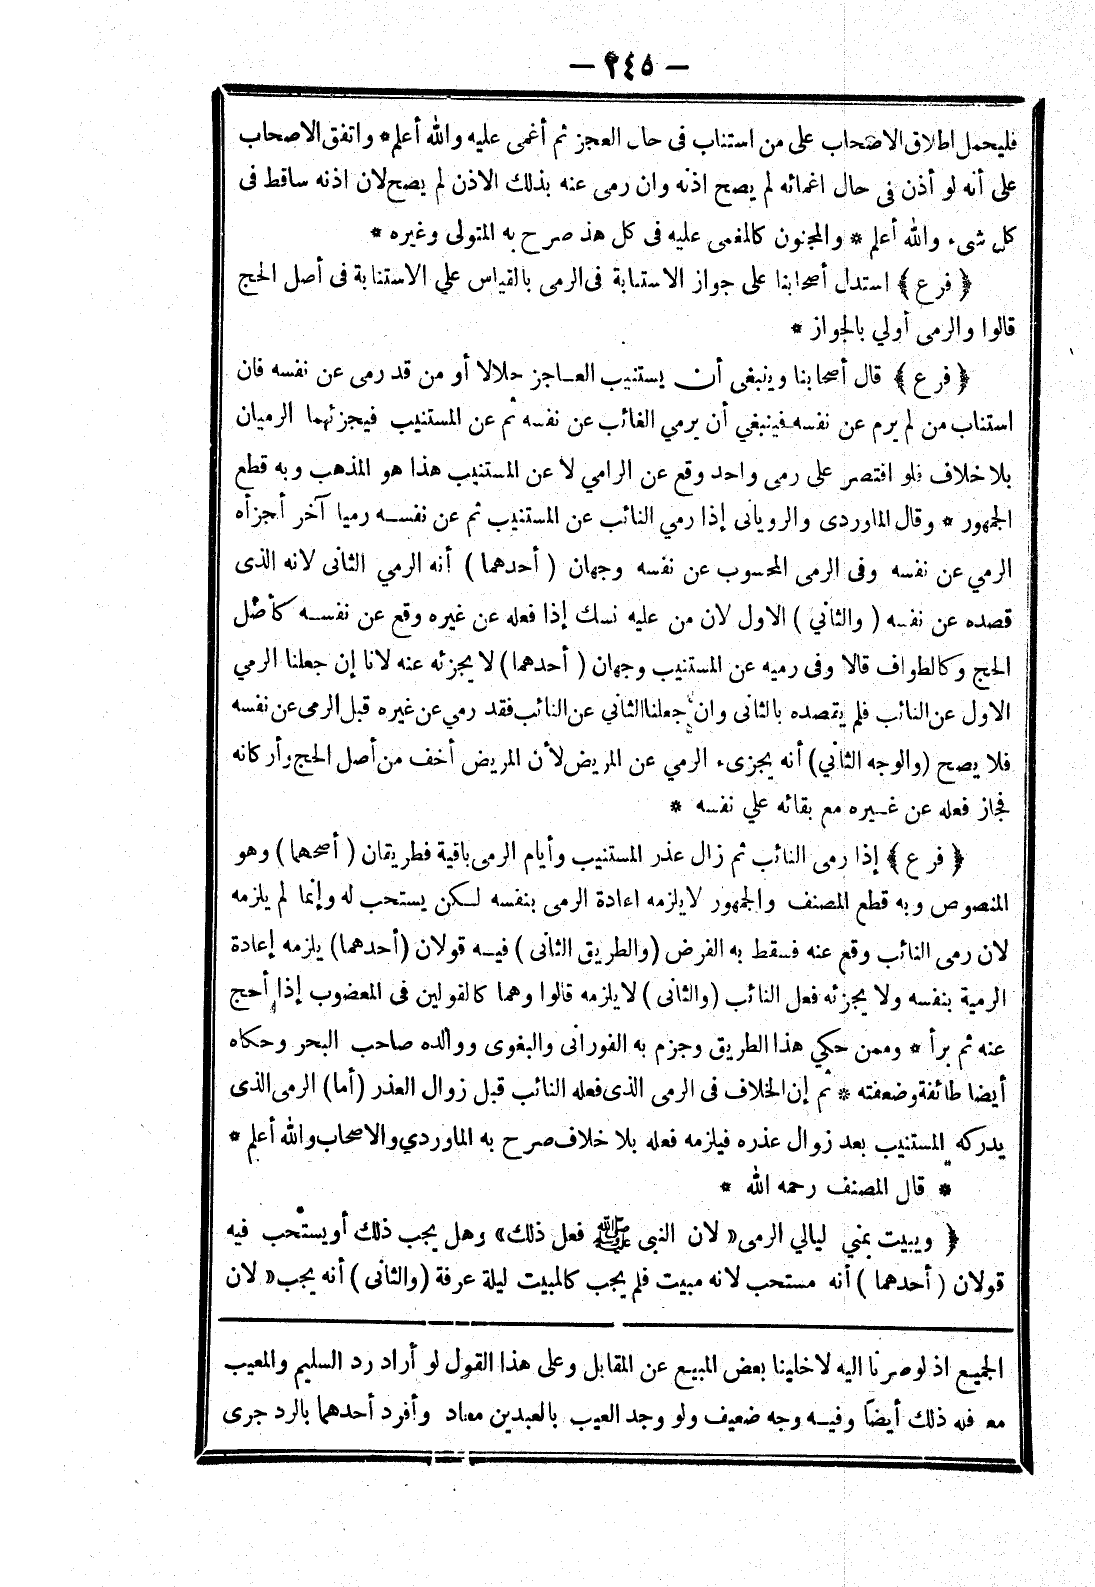 — ٢٤٥ —
فليحمل اطلاق الاصحاب على من استناب فى حال العجز ثم أغمى عليه والله أعلم* واتفق الاصحاب
على أنه لو أذن فى حال اغمائه لم يصح اذنه وان رمى عنه بذلك الاذن لم يصح لان اذنه ساقط فى
كل شىء والله أعلم * والمجنون كالمغمى عليه فى كل هذ صرح به المتولى وغيره *
﴿ فرع ﴾ استدل أصحابنا على جواز الاستنابة فى الرمى بالقياس علي الاستنابة فى أصل الحج
قالوا والرمى أولي بالجواز *
﴿ فرع ﴾ قال أصحابنا وينبغى أن يستنيب العاجز حلالا أو من قد رمى عن نفسه فان
استناب من لم يرم عن نفسه فينبغي أن يرمي الغائب عن نفسه ثم عن المستنيب فيجزئهما الرميان
بلا خلاف فلو اقتصر على رمى واحد وقع عن الرامي لا عن المستنيب هذا هو المذهب وبه قطع
الجمهور * وقال الماوردى والرويانى إذا رمي النائب عن المستنيب ثم عن نفسه رميا آخر أجزأه
الرمي عن نفسه وفى الرمى المحسوب عن نفسه وجهان ( أحدهما ) أنه الرمي الثانى لانه الذى
قصده عن نفسه ( والثاني ) الاول لان من عليه نسك إذا فعله عن غيره وقع عن نفسه كأصل
الحج وكالطواف قالا وفى رميه عن المستنيب وجهان ( أحدهما) لا يجزئه عنه لانا إن جعلنا الرمي
الاول عن النائب فلم يقصده بالثانى وان جعلنا الثاني عن النائب فقد رمي عن غيره قبل الرمى عن نفسه
فلا يصح (والوجه الثاني) أنه يجزىء الرمي عن المريض لأن المريض أخف من أصل الحج وأركانه
فجاز فعله عن غيره مع بقائه علي نفسه *
﴿ فرع ﴾ إذا رمى النائب ثم زال عذر المستنيب وأيام الرمى باقية فطريقان ( أصحهما ) وهو
المنصوص وبه قطع المصنف والجمهور لا يلزمه اعادة الرمى بنفسه لكن يستحب له وإنما لم يلزمه
لان رمى النائب وقع عنه فسقط به الفرض (والطريق الثانى ) فيه قولان (أحدهما) يلزمه إعادة
الرمية بنفسه ولا يجزئه فعل النائب (والثانى ) لا يلزمه قالوا وهما كالقولين فى المعضوب إذا أحج
عنه ثم برأ * وممن حكي هذا الطريق وجزم به الفورانى والبغوى ووالده صاحب البحر وحكاه
أيضا طائفة وضعفته * ثم إن الخلاف فى الرمى الذى فعله النائب قبل زوال العذر (أما) الرمى الذى
يدركه المستنيب بعد زوال عذره فيلزمه فعله بلا خلاف صرح به الماوردي والاصحاب والله أعلم *
* قال المصنف رحمه الله *
﴿ ويبيت بمني ليالي الرمى « لان النبى ﷺ فعل ذلك» وهل يجب ذلك أو يستحب فيه
قولان ( أحدهما ) أنه مستحب لانه مبيت فلم يجب كالمبيت ليلة عرفة (والثانى ) أنه يجب « لان
الجميع اذ لو صرنا اليه لاخلينا بعض المبيع عن المقابل وعلى هذا القول لو أراد رد السليم والمعيب
معا فله ذلك أيضاً وفيه وجه ضعيف ولو وجد العيب بالعبدين معاد وأفرد أحدهما بالرد جرى